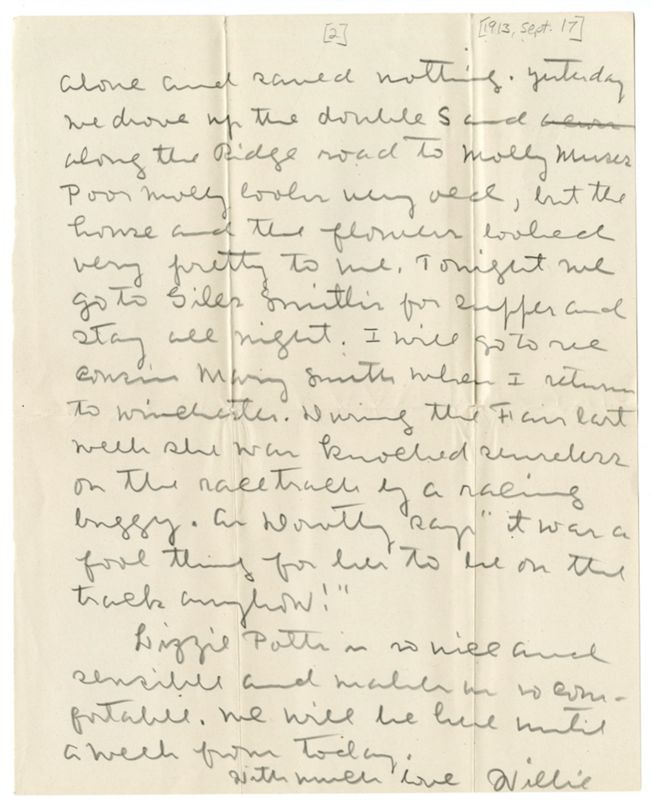 [2] [1913, Sept. 17]
alone and saved nothing. Yesterday
we drove up the double S and
along the Ridge road to Molly Muses
Poor Molly looks very old, but the
house and the flowers looked
very pretty to me. Tonight we
go to Giles Smith's for supper and
stay all night. I will go to see
cousin Mary Smith when I return
to Winchester. During the Fair last
week she was knocked senseless
on the racetrack by a racing
buggy. As Dorothy says "it was a
fool thing for her to be on the
track anyhow!"
Lizzie Potts is so nice and
sensible and makes us so com-
fortable. We will be here until
a week from today.
With much love Willie